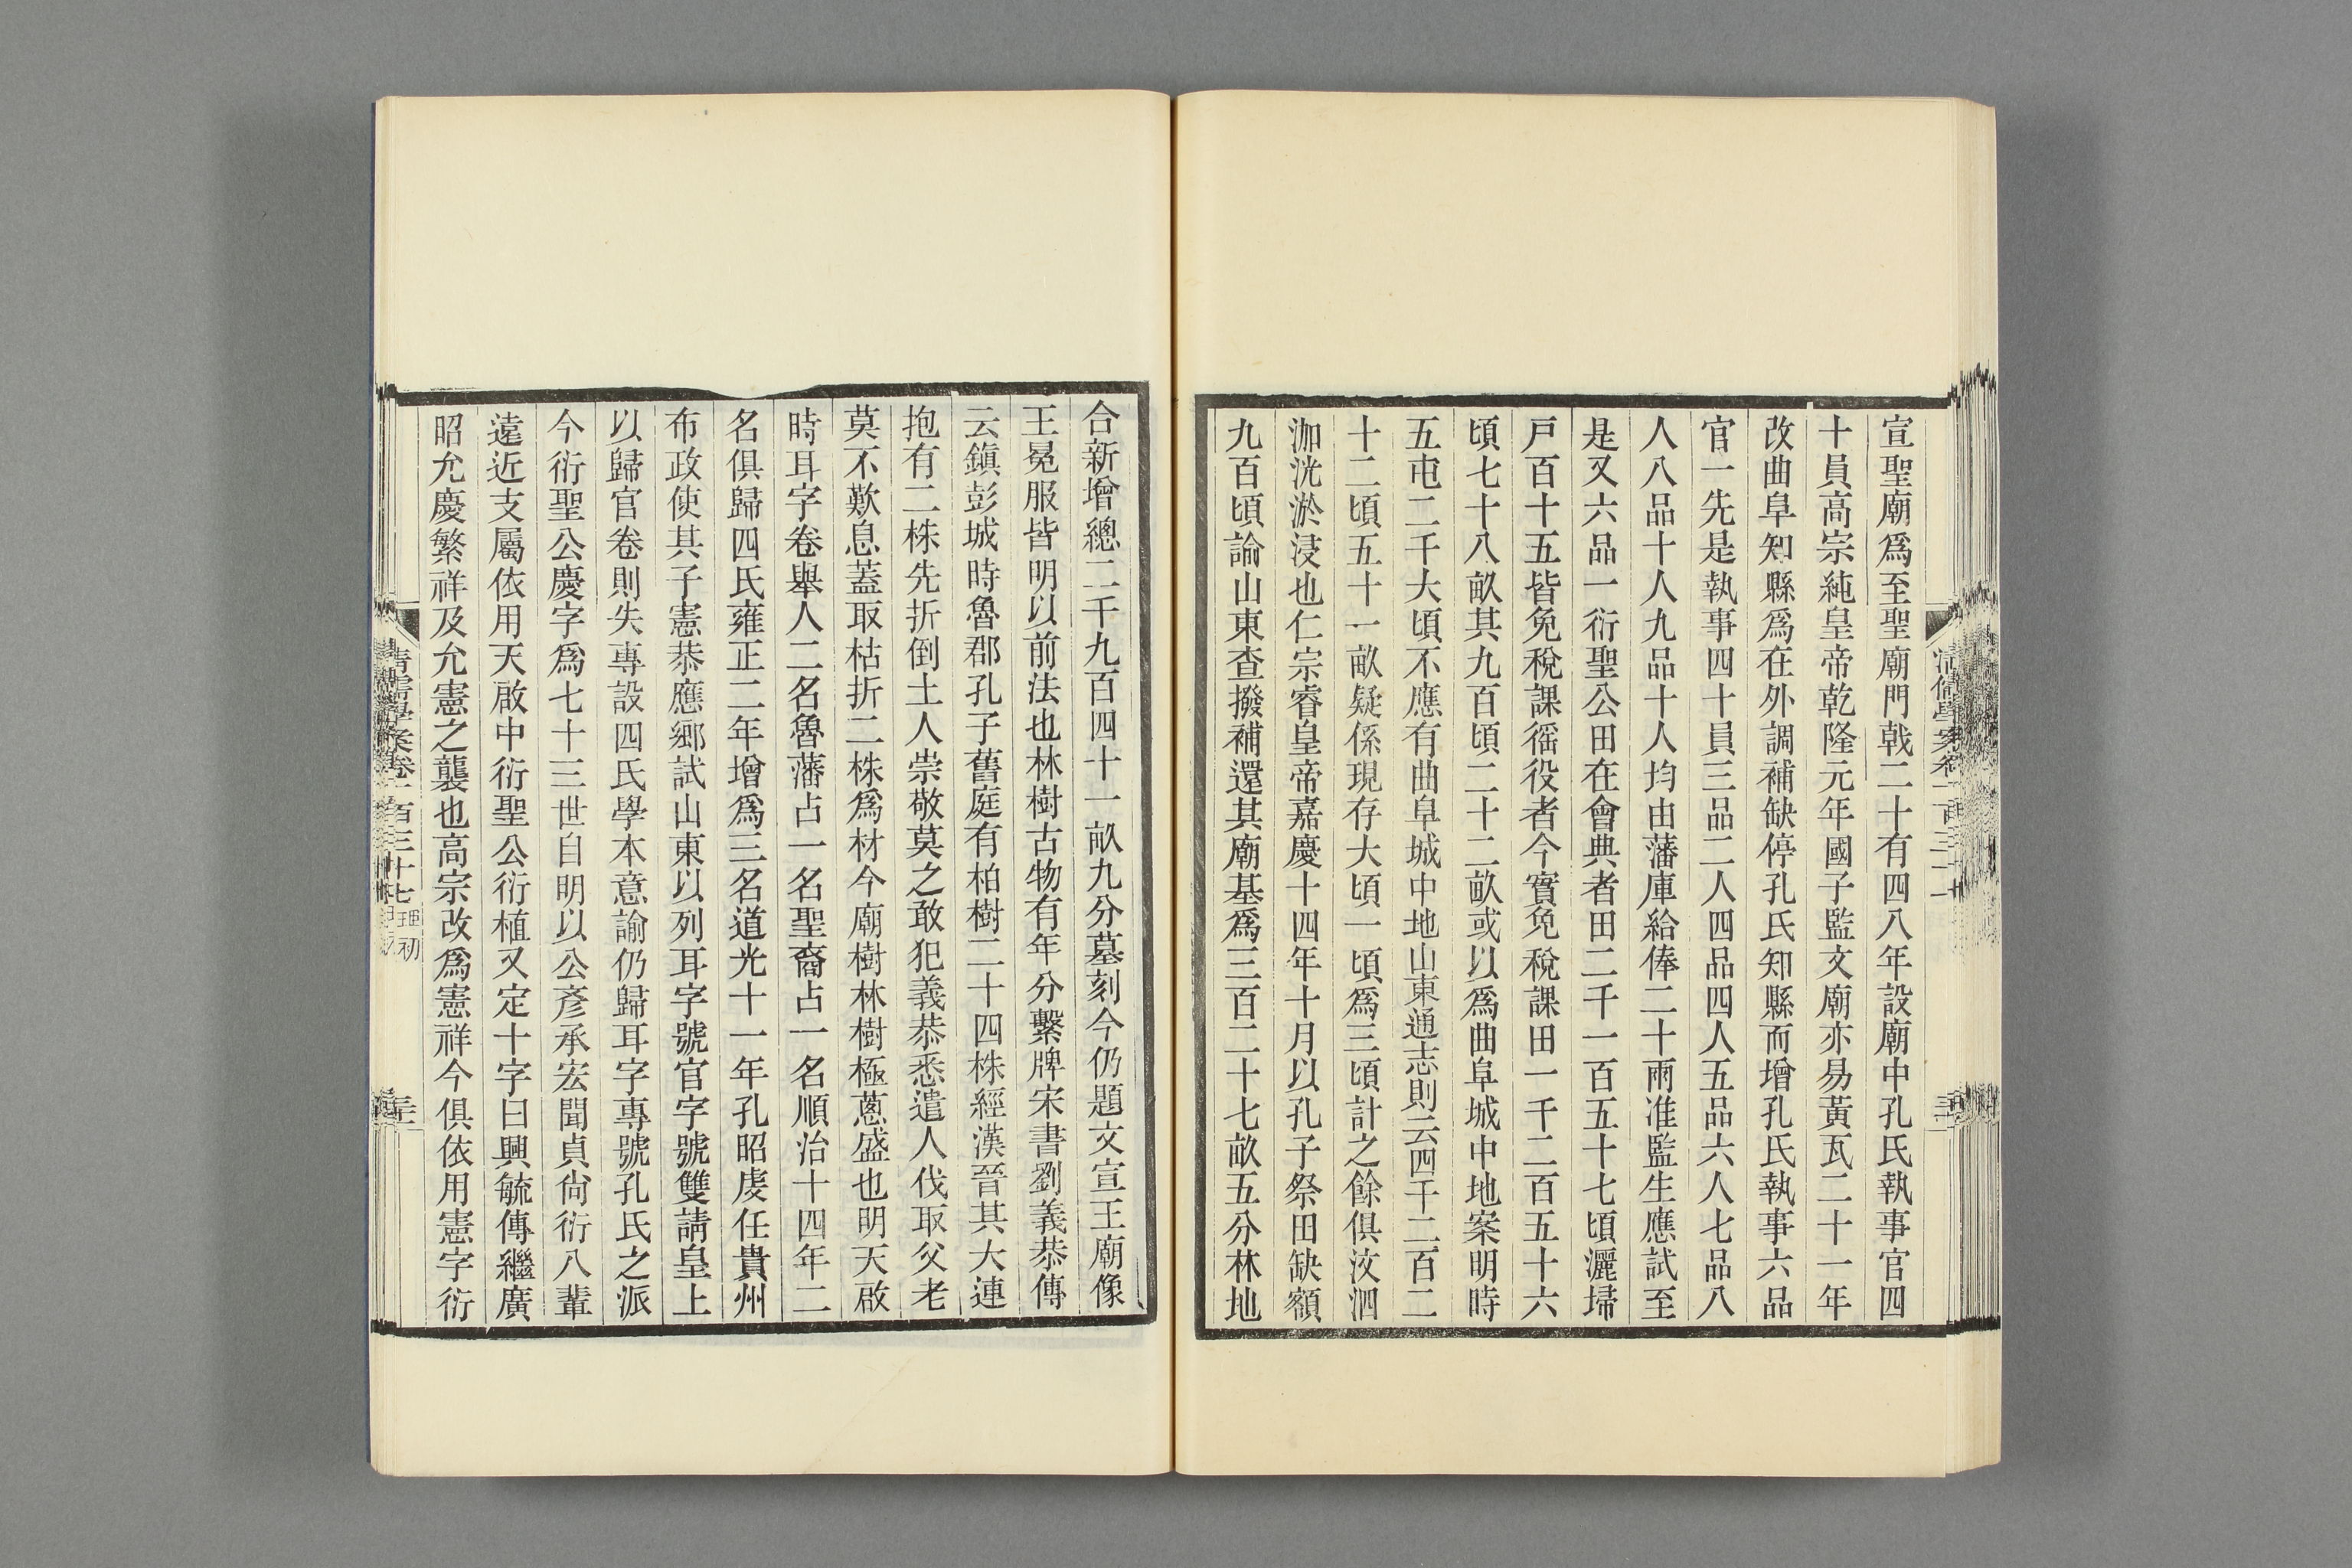 宣聖廟爲至聖廟門戟二十有四八年設廟中孔氏執事官四
十員高宗純皇帝乾隆元年國子監文廟亦易黃瓦二十一年
改曲阜知縣爲在外調補缺停孔氏知縣而增孔氏執事六品
官一先是執事四十員三品二人四品四人五品六人七品八
人八品十人九品十人均由藩庫給俸二十兩准監生應試至
是又六品一衍聖公田在會典者田二千一百五十七頃灑埽
戸百十五皆免稅課徭役者今實免稅課田一千二百五十六
頃七十八畝其九百頃二十二畝或以爲曲阜城中地案明時
五屯二千大頃不應有曲阜城中地山東通志則云四千二百二
十二頃五十一畝疑係現存大頃一頃爲三頃計之餘俱汶泗
泇洸淤浸也仁宗睿皇帝嘉慶十四年十月以孔子祭田缺額
九百頃諭山東查撥補還其廟基爲三百二十七畝五分林地
合新增總二千九百四十一畝九分墓刻今仍題文宣王廟像
王冕服皆明以前法也林樹古物有年分繫牌宋書劉義恭傳
云鎭彭城時魯郡孔子舊庭有柏樹二十四株經漢晉其大連
抱有二株先折倒土人崇敬莫之敢犯義恭悉遣人伐取父老
莫不歎息蓋取枯折二株爲材今廟樹林樹極蔥盛也明天啟
時耳字卷舉人二名魯藩占一名聖裔占一名順治十四年二
名俱歸四氏雍正二年增爲三名道光十一年孔昭虔任貴州
布政使其子憲恭應鄉試山東以列耳字號官字號雙請皇上
以歸官卷則失專設四氏學本意諭仍歸耳字專號孔氏之派
今衍聖公慶字爲七十三世自明以公彥承宏聞貞尙衍八輩
遠近支屬依用天啟中衍聖公衍植又定十字曰興毓傳繼廣
昭允慶繁祥及允憲之襲也高宗改爲憲祥今俱依用憲字衍
清儒學案卷一百三十七 理初